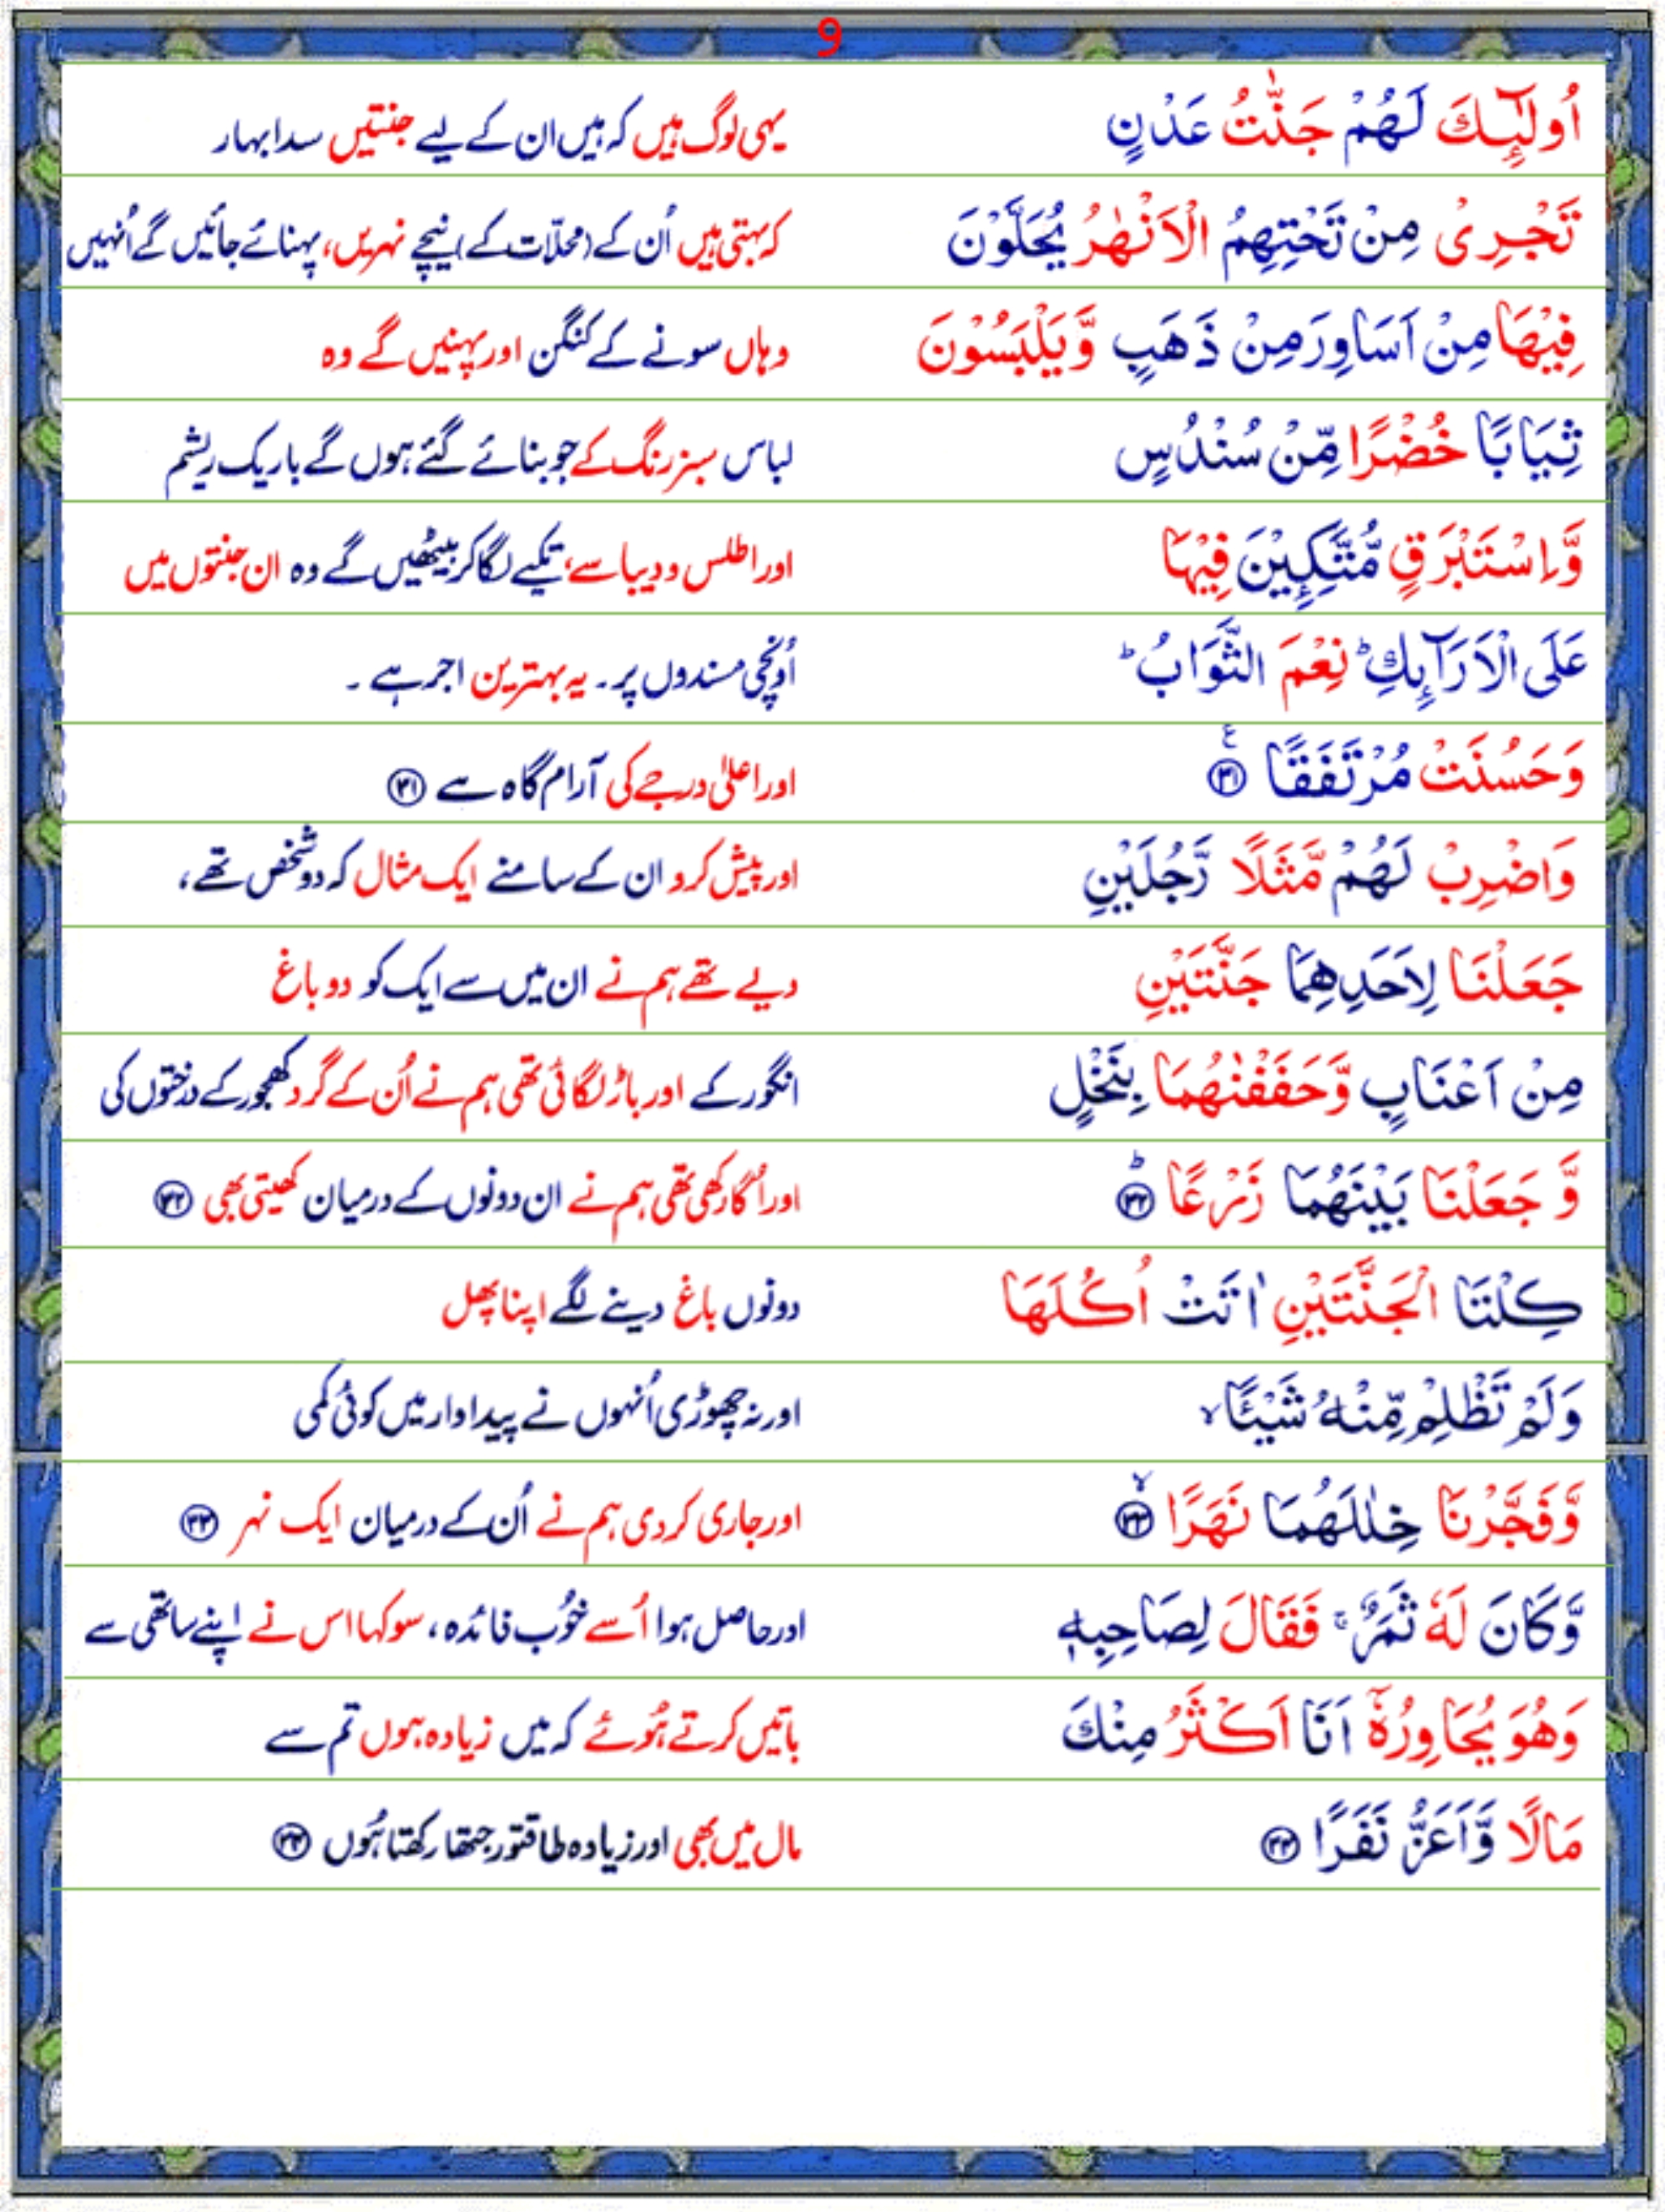 9
اُولٰٓئِكَ لَهُمْ جَنّٰتُ عَدْنٍ یہی لوگ ہیں کہ ہیں ان کے لیے جنتیں سدا بہار
تَجْرِیْ مِنْ تَحْتِهِمُ الْاَنْهٰرُ یُحَلَّوْنَ کہ بہتی ہیں اُن کے (محلّات کے) نیچے نہریں، پہنائے جائیں گے اُنہیں
فِیْهَا مِنْ اَسَاوِرَ مِنْ ذَهَبٍ وَّیَلْبَسُوْنَ وہاں سونے کے کنگن اور پہنیں گے وہ
ثِیَابًا خُضْرًا مِّنْ سُنْدُسٍ لباس سبز رنگ کے جو بنائے گئے ہوں گے باریک ریشم
وَّاِسْتَبْرَقٍ مُّتَّكِـِٕیْنَ فِیْهَا اور اطلس و دیبا سے، تکیے لگا کر بیٹھیں گے وہ ان جنتوں میں
عَلَی الْاَرَآىِٕكِ ؕ نِعْمَ الثَّوَابُ ؕ اُونچی مسندوں پر۔ یہ بہترین اجر ہے ۔
وَحَسُنَتْ مُرْتَفَقًا ۟۠ ﴿۳۱﴾ اور اعلیٰ درجے کی آرام گاہ ہے ﴿۳۱﴾
وَاضْرِبْ لَهُمْ مَّثَلًا رَّجُلَیْنِ اور پیش کرو ان کے سامنے ایک مثال کہ دو شخص تھے،
جَعَلْنَا لِاَحَدِهِمَا جَنَّتَیْنِ دیے تھے ہم نے ان میں سے ایک کو دو باغ
مِنْ اَعْنَابٍ وَّحَفَفْنٰهُمَا بِنَخْلٍ انگور کے اور باڑ لگائی تھی ہم نے اُن کے گرد کھجور کے درختوں کی
وَّ جَعَلْنَا بَیْنَهُمَا زَرْعًا ؕ ﴿۳۲﴾ اور اُگا رکھی تھی ہم نے ان دونوں کے درمیان کھیتی بھی ﴿۳۲﴾
كِلْتَا الْجَنَّتَیْنِ اٰتَتْ اُكُلَهَا دونوں باغ دینے لگے اپنا پھل
وَلَمْ تَظْلِمْ مِّنْهُ شَیْئًا ۙ اور نہ چھوڑی اُنہوں نے پیداوار میں کوئی کمی
وَّفَجَّرْنَا خِلٰلَهُمَا نَهَرًا ۙ ﴿۳۳﴾ اور جاری کر دی ہم نے اُن کے درمیان ایک نہر ﴿۳۳﴾
وَّكَانَ لَهٗ ثَمَرٌ ۚ فَقَالَ لِصَاحِبِهٖ اور حاصل ہوا اُسے خُوب فائدہ، سو کہا اس نے اپنے ساتھی سے
وَهُوَ یُحَاوِرُهٗۤ اَنَا اَكْثَرُ مِنْكَ باتیں کرتے ہُوئے کہ میں زیادہ ہوں تم سے
مَالًا وَّاَعَزُّ نَفَرًا ﴿۳۴﴾ مال میں بھی اور زیادہ طاقتور جتھا رکھتا ہُوں ﴿۳۴﴾